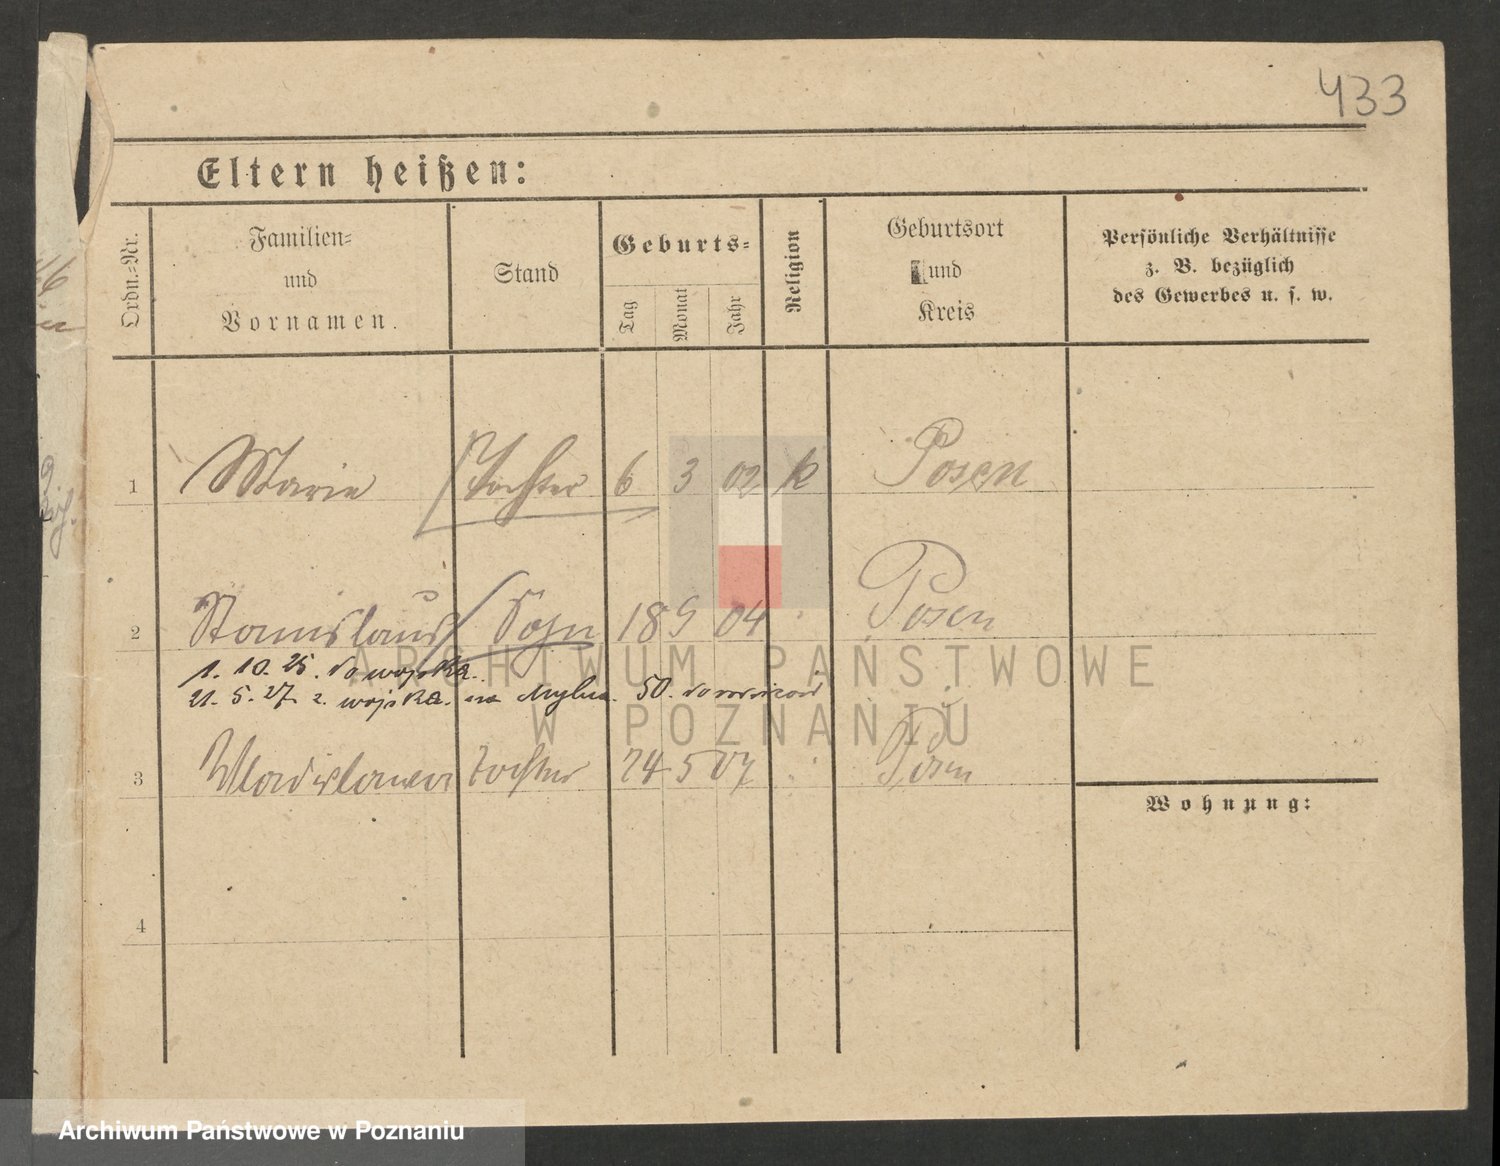 433
Eltern heißen:
Ordn.-Nr.
Familien-
und
Vornamen.
Stand
Geburts-
Tag
Monat
Jahr
Religion
Geburtsort
und
Kreis
Persönliche Verhältnisse
z. B. bezüglich
des Gewerbes u. s. w.
1 Marie Tochter 6 3 02 k Posen
2 Stanislaus Sohn 18 9 04 Posen
1. 10. 25. do wojska.
21. 5. 27. z wojska. na Mylna. 50.
3 Wladislawa Tochter 24 5 07 Posen
Wohnung:
4
ARCHIWUM PAŃSTWOWE
W POZNANIU
Archiwum Państwowe w Poznaniu